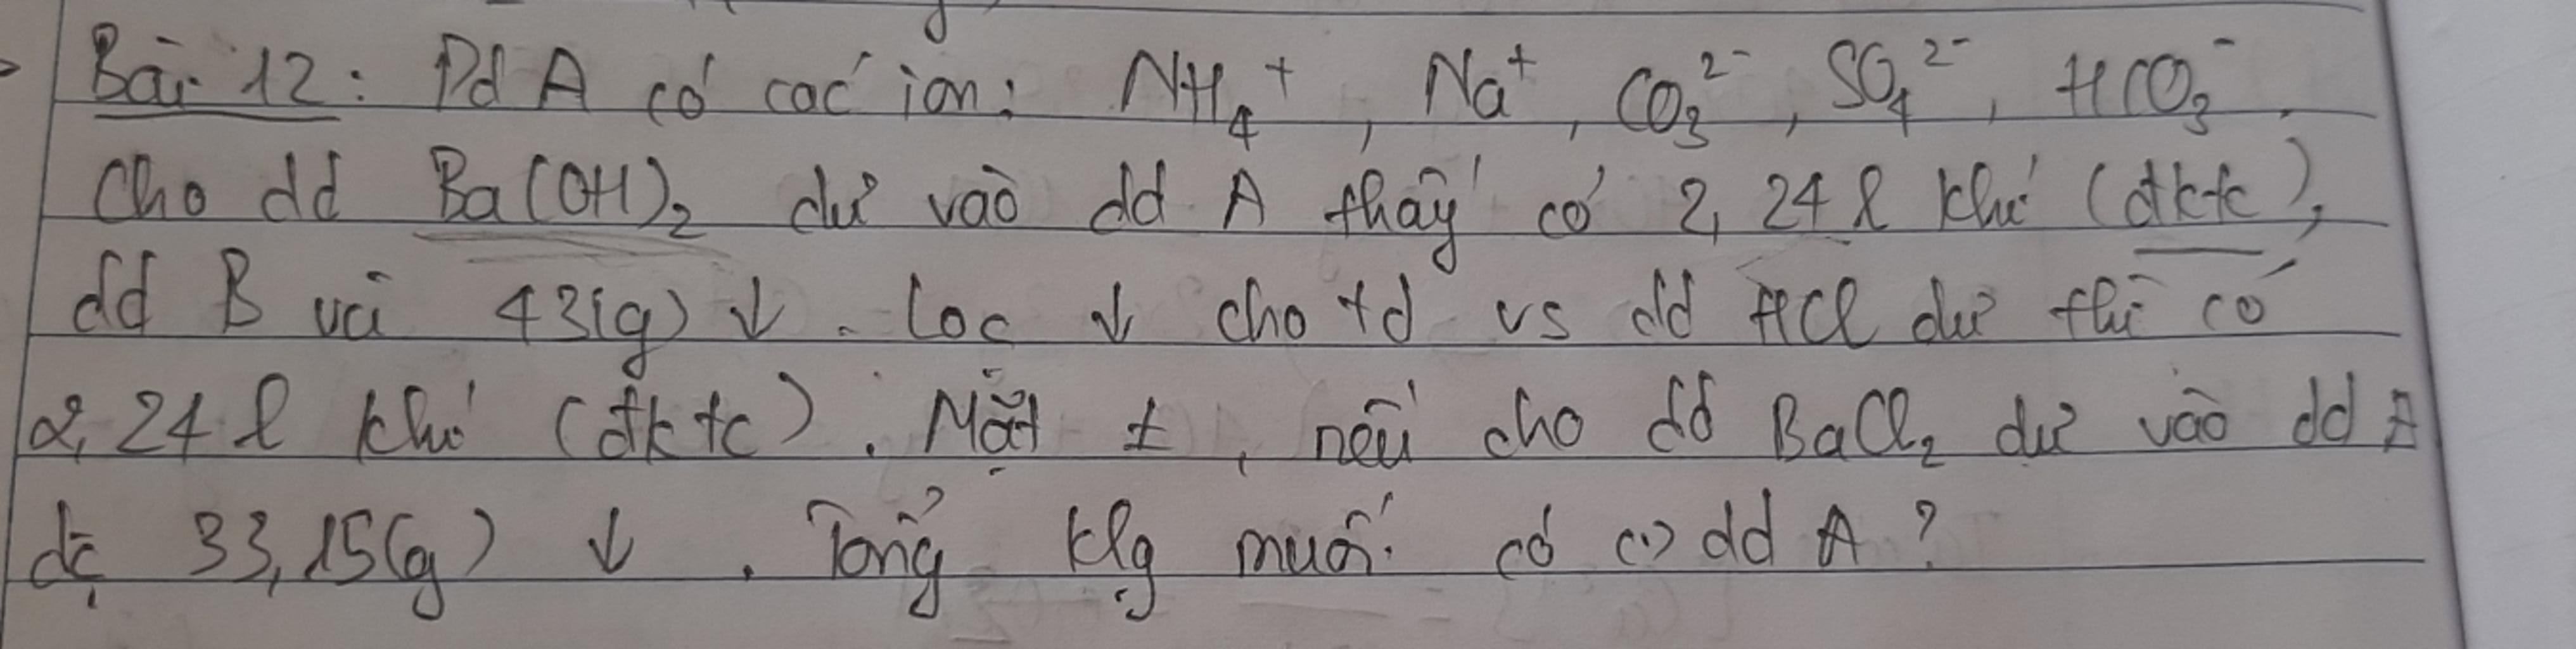 Bài 12: Dd A có các ion: NH₄⁺, Na⁺, CO₃²⁻, SO₄²⁻, HCO₃⁻.
Cho dd Ba(OH)₂ dư vào dd A thấy có 2,24 l khí (đktc),
dd B và 43(g) ↓. Lọc ↓ cho td vs dd HCl dư thì có
2,24 l khí (đktc). Mặt ≠, nếu cho dd BaCl₂ dư vào dd A
đc 33,15(g) ↓. Tổng klg muối có (.) dd A?